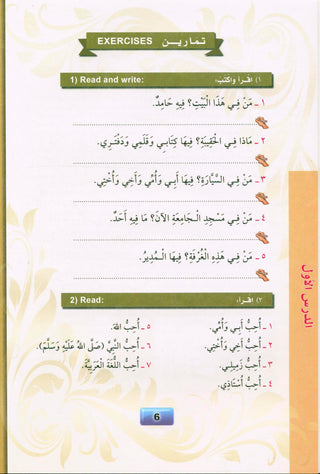 تمارين EXERCISES
1) Read and write: ١) اقرأ واكتب:
١ - مَنْ فِي هَذَا الْبَيْتِ؟ فِيهِ حَامِدٌ.
٢ - مَاذَا فِي الْحَقِيبَةِ؟ فِيهَا كِتَابِي وَقَلَمِي وَدَفْتَرِي.
٣ - مَنْ فِي السَّيَّارَةِ؟ فِيهَا أَبِي وَأُمِّي وَأَخِي وَأُخْتِي.
٤ - مَنْ فِي مَسْجِدِ الْجَامِعَةِ الْآنَ؟ مَا فِيهِ أَحَدٌ.
٥ - مَنْ فِي هَذِهِ الْغُرْفَةِ؟ فِيهَا الْمُدِيرُ.
2) Read: ٢) اقرأ:
١ - أُحِبُّ أَبِي وَأُمِّي.
٢ - أُحِبُّ أَخِي وَأُخْتِي.
٣ - أُحِبُّ زَمِيلِي.
٤ - أُحِبُّ أُسْتَاذِي.
٥ - أُحِبُّ اللهَ.
٦ - أُحِبُّ النَّبِيَّ (صَلَّى اللهُ عَلَيْهِ وَسَلَّمَ).
٧ - أُحِبُّ اللُّغَةَ الْعَرَبِيَّةَ.
الدرس الأول
6